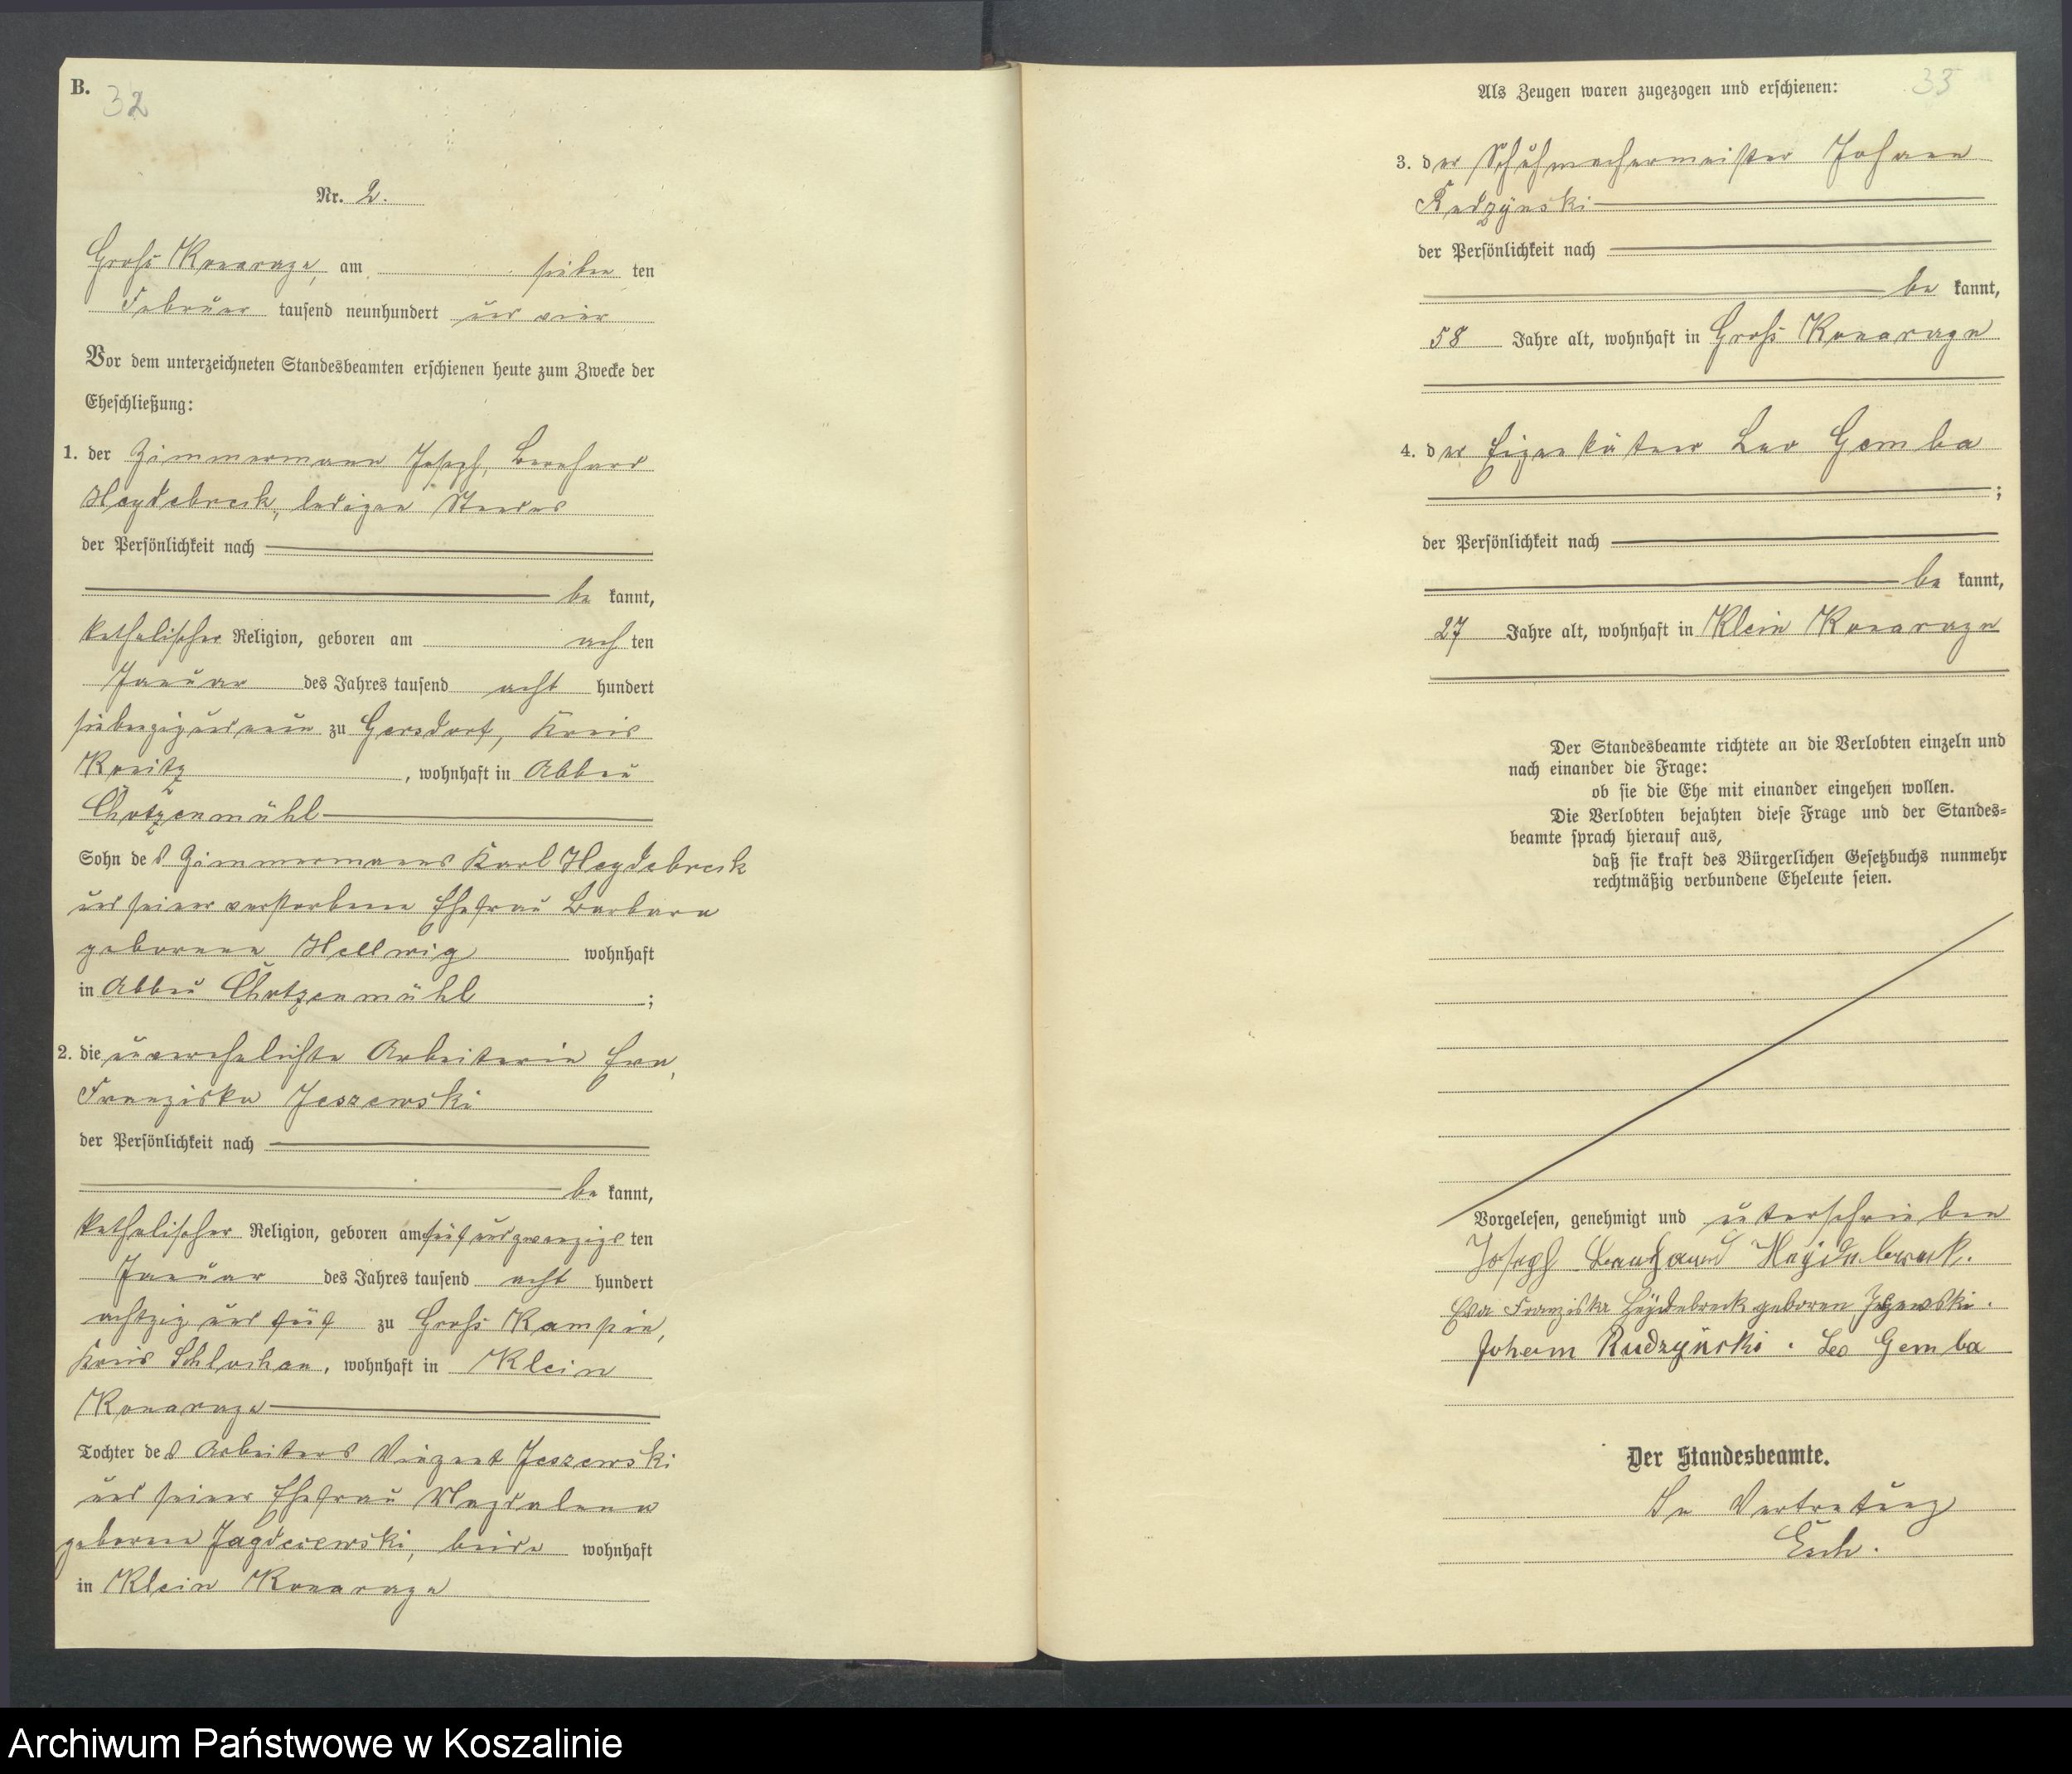 B.
32
Nr. 2.
Groß Konarzyn, am sieben ten
Februar tausend neunhundert und vier
Vor dem unterzeichneten Standesbeamten erschienen heute zum Zwecke der
Eheschließung:
1. der Zimmermann Joseph, Bernhard
Heydebreck, ledigen Standes
der Persönlichkeit nach
be kannt,
katholischer Religion, geboren am ach ten
Januar des Jahres tausend acht hundert
siebenzig und neun zu Gersdorf, Kreis
Konitz, wohnhaft in Abbau
Chotzenmühl
Sohn des Zimmermanns Karl Heydebreck
und seiner verstorbenen Ehefrau Barbara
geborenen Hellwig wohnhaft
in Abbau Chotzenmühl ;
2. die unverehelichte Arbeiterin Eva,
Franziska Jeszewski
der Persönlichkeit nach
be kannt,
katholischer Religion, geboren am fünfundzwanzigs ten
Januar des Jahres tausend acht hundert
achtzig und fünf zu Groß
Kreis Schlochau, wohnhaft in Klein
Konarzyn
Tochter des Arbeiters Vinzent Jeszewski
und seiner Ehefrau Magdalena
geborenen beide wohnhaft
in Klein Konarzyn
33
Als Zeugen waren zugezogen und erschienen:
3. der Schuhmachermeister Johann
Rudzynski
der Persönlichkeit nach
be kannt,
58 Jahre alt, wohnhaft in Groß Konarzyn
4. der Eigenkätner Leo Gemba
;
der Persönlichkeit nach
be kannt,
27 Jahre alt, wohnhaft in Klein Konarzyn
Der Standesbeamte richtete an die Verlobten einzeln und
nach einander die Frage:
ob sie die Ehe mit einander eingehen wollen.
Die Verlobten bejahten diese Frage und der Standes-
beamte sprach hierauf aus,
daß sie kraft des Bürgerlichen Gesetzbuchs nunmehr
rechtmäßig verbundene Eheleute seien.
Vorgelesen, genehmigt und unterschrieben
Joseph Bernhard Heydebreck.
Eva Franziska Heydebreck geboren Jeszewski.
Johann Rudzynski. Leo Gemba
Der Standesbeamte.
In Vertretung
Esch.
Archiwum Państwowe w Koszalinie